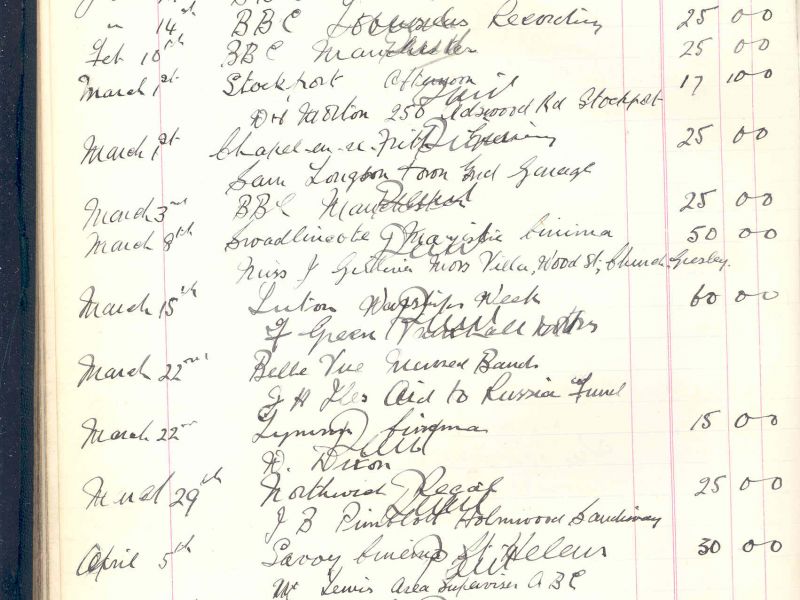 " 14th BBC Recording 25 00
Feb 10th BBC Manchester 25 00
March 1st Stockport Afternoon 17 10 0
Morton 250 Adswood Rd Stockport
March 1st Chapel-en-le-Frith Evening 25 00
Sam Longson Town End Garage
March 3rd BBC Manchester 25 00
March 8th Swadlincote Majestic Cinema 50 00
Miss J Moss Villa, Wood St, Church Gresley.
March 15th Luton Warships Week 60 00
Green Vauxhall Motors
March 22nd Belle Vue Massed Bands
J H Iles Aid to Russia Fund
March 22nd Lymm Cinema 15 00
Dixon
March 29th Northwich Regal 25 00
J B Holmwood Sandiway
April 5th Savoy Cinema St Helens 30 00
Mr Lewis Area Supervisor ABC